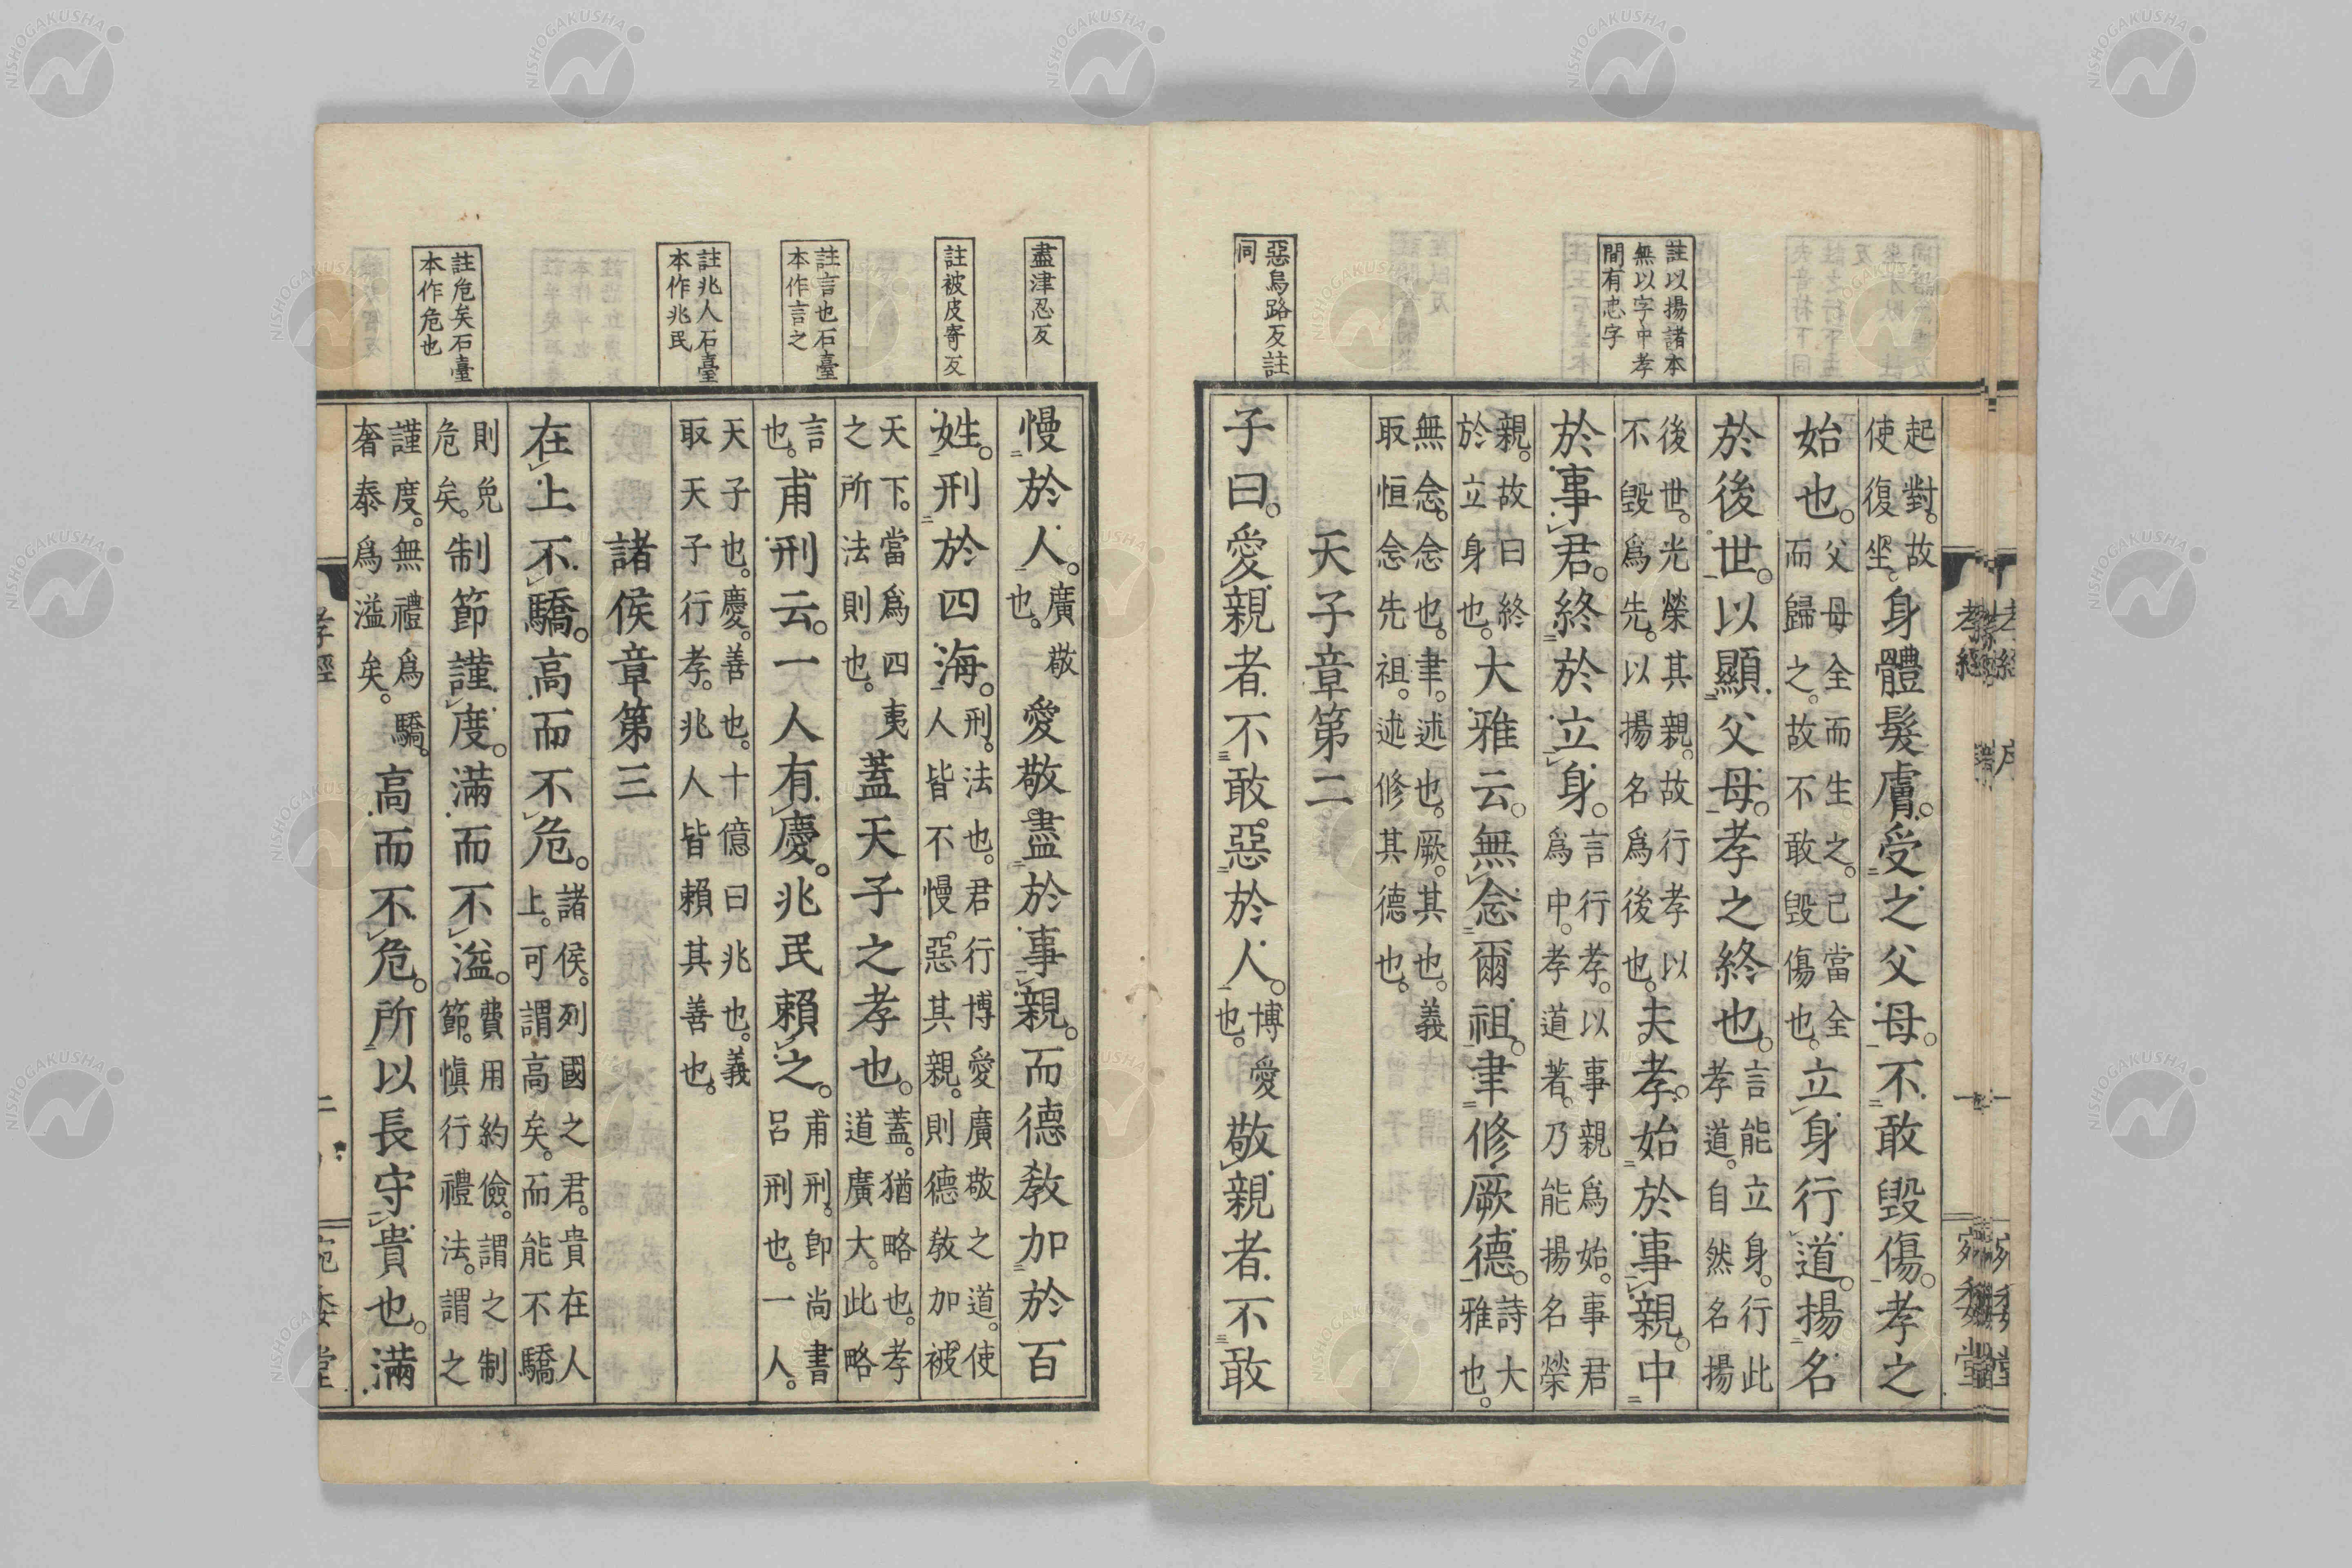 註以揚諸本
無以字中孝
間有忠字
惡烏路反註
同
起對。故
使復坐。身體髮膚。受之父母。不敢毀傷。孝之
始也。父母全而生之。己當全
而歸之。故不敢毀傷也。立身行道。揚名
於後世。以顯父母。孝之終也。言能立身。行此
孝道。自然名揚
後世。光榮其親。故行孝以
不毀爲先。以揚名爲後也。夫孝。始於事親。中
於事君。終於立身。言行孝。以事親爲始。事君
爲中。孝道著。乃能揚名榮
親。故曰終
於立身也。大雅云。無念爾祖。聿修厥德。詩大
雅也。
無念。念也。聿。述也。厥。其也。義
取恒念先祖。述修其德也。
天子章第二
子曰。愛親者。不敢惡於人。博愛
也。敬親者。不敢
盡津忍反
註被皮寄反
註言也石臺
本作言之
註兆人石臺
本作兆民
註危矣石臺
本作危也
慢於人。廣敬
也。愛敬盡於事親。而德教加於百
姓。刑於四海。刑。法也。君行博愛廣敬之道。使
人皆不慢惡其親。則德教加被
天下。當爲四夷
之所法則也。蓋天子之孝也。蓋。猶略也。孝
道廣大。此略
言
也。甫刑云。一人有慶。兆民賴之。甫刑。卽尚書
呂刑也。一人。
天子也。慶。善也。十億曰兆也。義
取天子行孝。兆人皆賴其善也。
諸侯章第三
在上不驕。高而不危。諸侯。列國之君。貴在人
上。可謂高矣。而能不驕
則免
危矣。制節謹度。滿而不溢。費用約儉。謂之制
節。愼行禮法。謂之
謹度。無禮爲驕。
奢泰爲溢矣。高而不危。所以長守貴也。滿
孝經
二
宛委堂
NISHOGAKUSHA